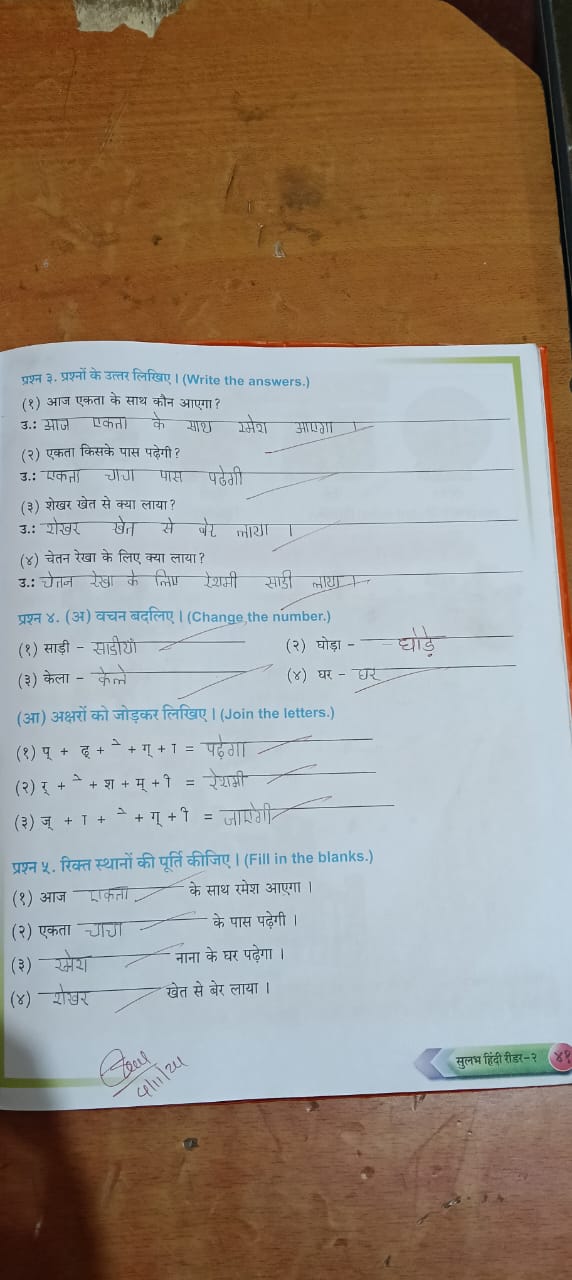 प्रश्न ३. प्रश्नों के उत्तर लिखिए । (Write the answers.)
(१) आज एकता के साथ कौन आएगा ?
उ.: आज एकता के साथ रमेश आएगा ।
(२) एकता किसके पास पढ़ेगी ?
उ.: एकता चाचा पास पढेगी
(३) शेखर खेत से क्या लाया ?
उ.: शेखर खेत से बेर लाया ।
(४) चेतन रेखा के लिए क्या लाया ?
उ.: चेतन रेखा के लिए रेशमी साडी लाया ।
प्रश्न ४. (अ) वचन बदलिए । (Change the number.)
(१) साड़ी - साडीयाँ (२) घोड़ा - घोड़े
(३) केला - केले (४) घर - घर
(आ) अक्षरों को जोड़कर लिखिए । (Join the letters.)
(१) प् + ढ़् + े + ग् + ा = पढ़ेगा
(२) र् + े + श + म् + ी = रेशमी
(३) ज् + ा + े + ग् + ी = जाऐगी
प्रश्न ५. रिक्त स्थानों की पूर्ति कीजिए । (Fill in the blanks.)
(१) आज एकता के साथ रमेश आएगा ।
(२) एकता चाचा के पास पढ़ेगी ।
(३) रमेश नाना के घर पढ़ेगा ।
(४) शेखर खेत से बेर लाया ।
सुलभ हिंदी रीडर-२ ४१